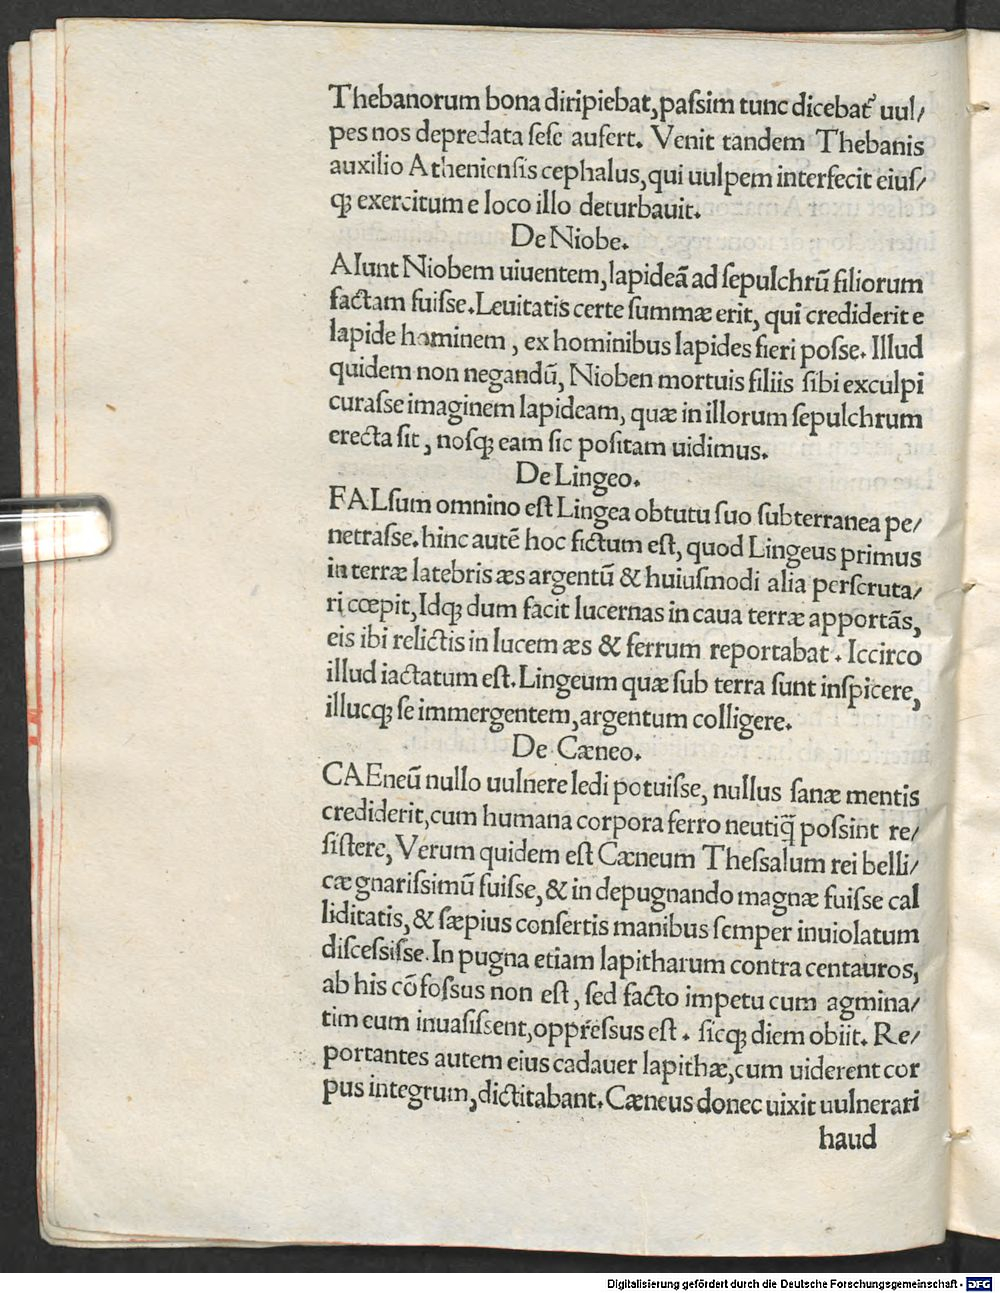 Thebanorum bona diripiebat, paſſim tunc dicebat᷒ uul/
pes nos depredata ſeſe aufert. Venit tandem Thebanis
auxilio Athenienſis cephalus, qui uulpem interfecit eiuſ/
qꝫ exercitum e loco illo deturbauit.
De Niobe.
AIunt Niobem uiuentem, lapideã ad ſepulchrũ filiorum
factam fuiſſe. Leuitatis certe ſummæ erit, qui crediderit e
lapide hominem, ex hominibus lapides fieri poſſe. Illud
quidem non negandũ, Nioben mortuis filiis ſibi exculpi
curaſſe imaginem lapideam, quæ in illorum ſepulchrum
erecta ſit, noſqꝫ eam ſic poſitam uidimus.
De Lingeo.
FALſum omnino eſt Lingea obtutu ſuo ſubterranea pe/
netraſſe. hinc autẽ hoc fictum eſt, quod Lingeus primus
in terræ latebris æs argentũ & huiuſmodi alia perſcruta/
ri cœpit, Idqꝫ dum facit lucernas in caua terræ apportãs,
eis ibi relictis in lucem æs & ferrum reportabat. Iccirco
illud iactatum eſt. Lingeum quæ ſub terra ſunt inſpicere,
illucqꝫ ſe immergentem, argentum colligere.
De Cæneo.
CAEneũ nullo uulnere ledi potuiſſe, nullus ſanæ mentis
crediderit, cum humana corpora ferro neutiq̃ poſſint re/
ſiſtere, Verum quidem eſt Cæneum Theſſalum rei belli/
cæ gnariſſimũ fuiſſe, & in depugnando magnæ fuiſſe cal
liditatis, & ſæpius conſertis manibus ſemper inuiolatum
diſceſſiſſe. In pugna etiam lapitharum contra centauros,
ab his cõfoſſus non eſt, ſed facto impetu cum agmina/
tim eum inuaſiſſent, oppreſſus eſt. ſicqꝫ diem obiit. Re/
portantes autem eius cadauer lapithæ, cum uiderent cor
pus integrum, dictitabant. Cæneus donec uixit uulnerari
haud
Digitalisierung gefördert durch die Deutsche Forschungsgemeinschaft - DFG